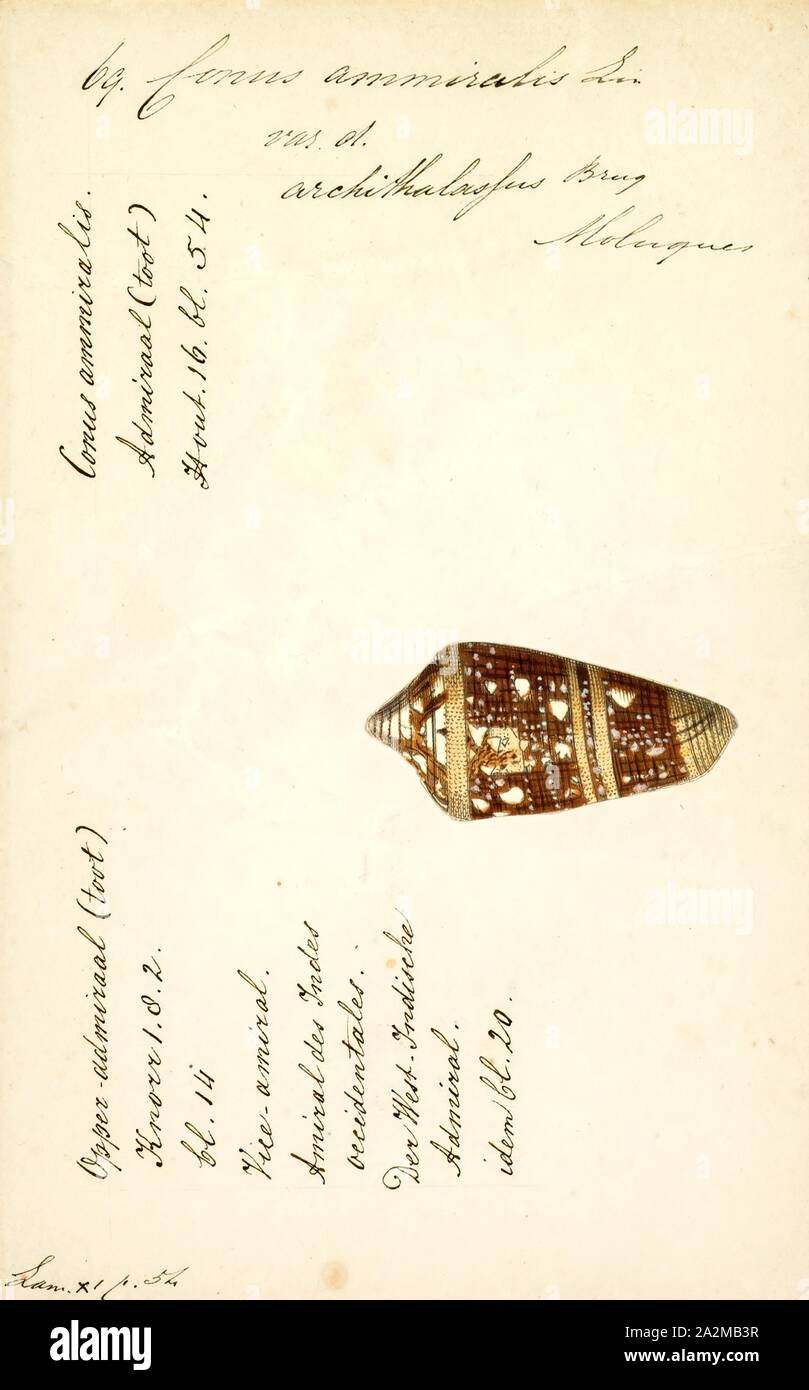 69. Conus ammiralis Lin
var. d.
archithalassus Brug
Moluques
Conus ammiralis.
Admiraal (toot)
Hout. 16. bl. 54.
Opper-admiraal (toot)
Knorr 1. 8. 2.
bl. 14
Vice-amiral.
Amiral des Indes
occidentales.
Der West-Indische
Admiral.
idem bl. 20.
Lam. p. 54
alamy
Image ID: A2MB3R
www.alamy.com